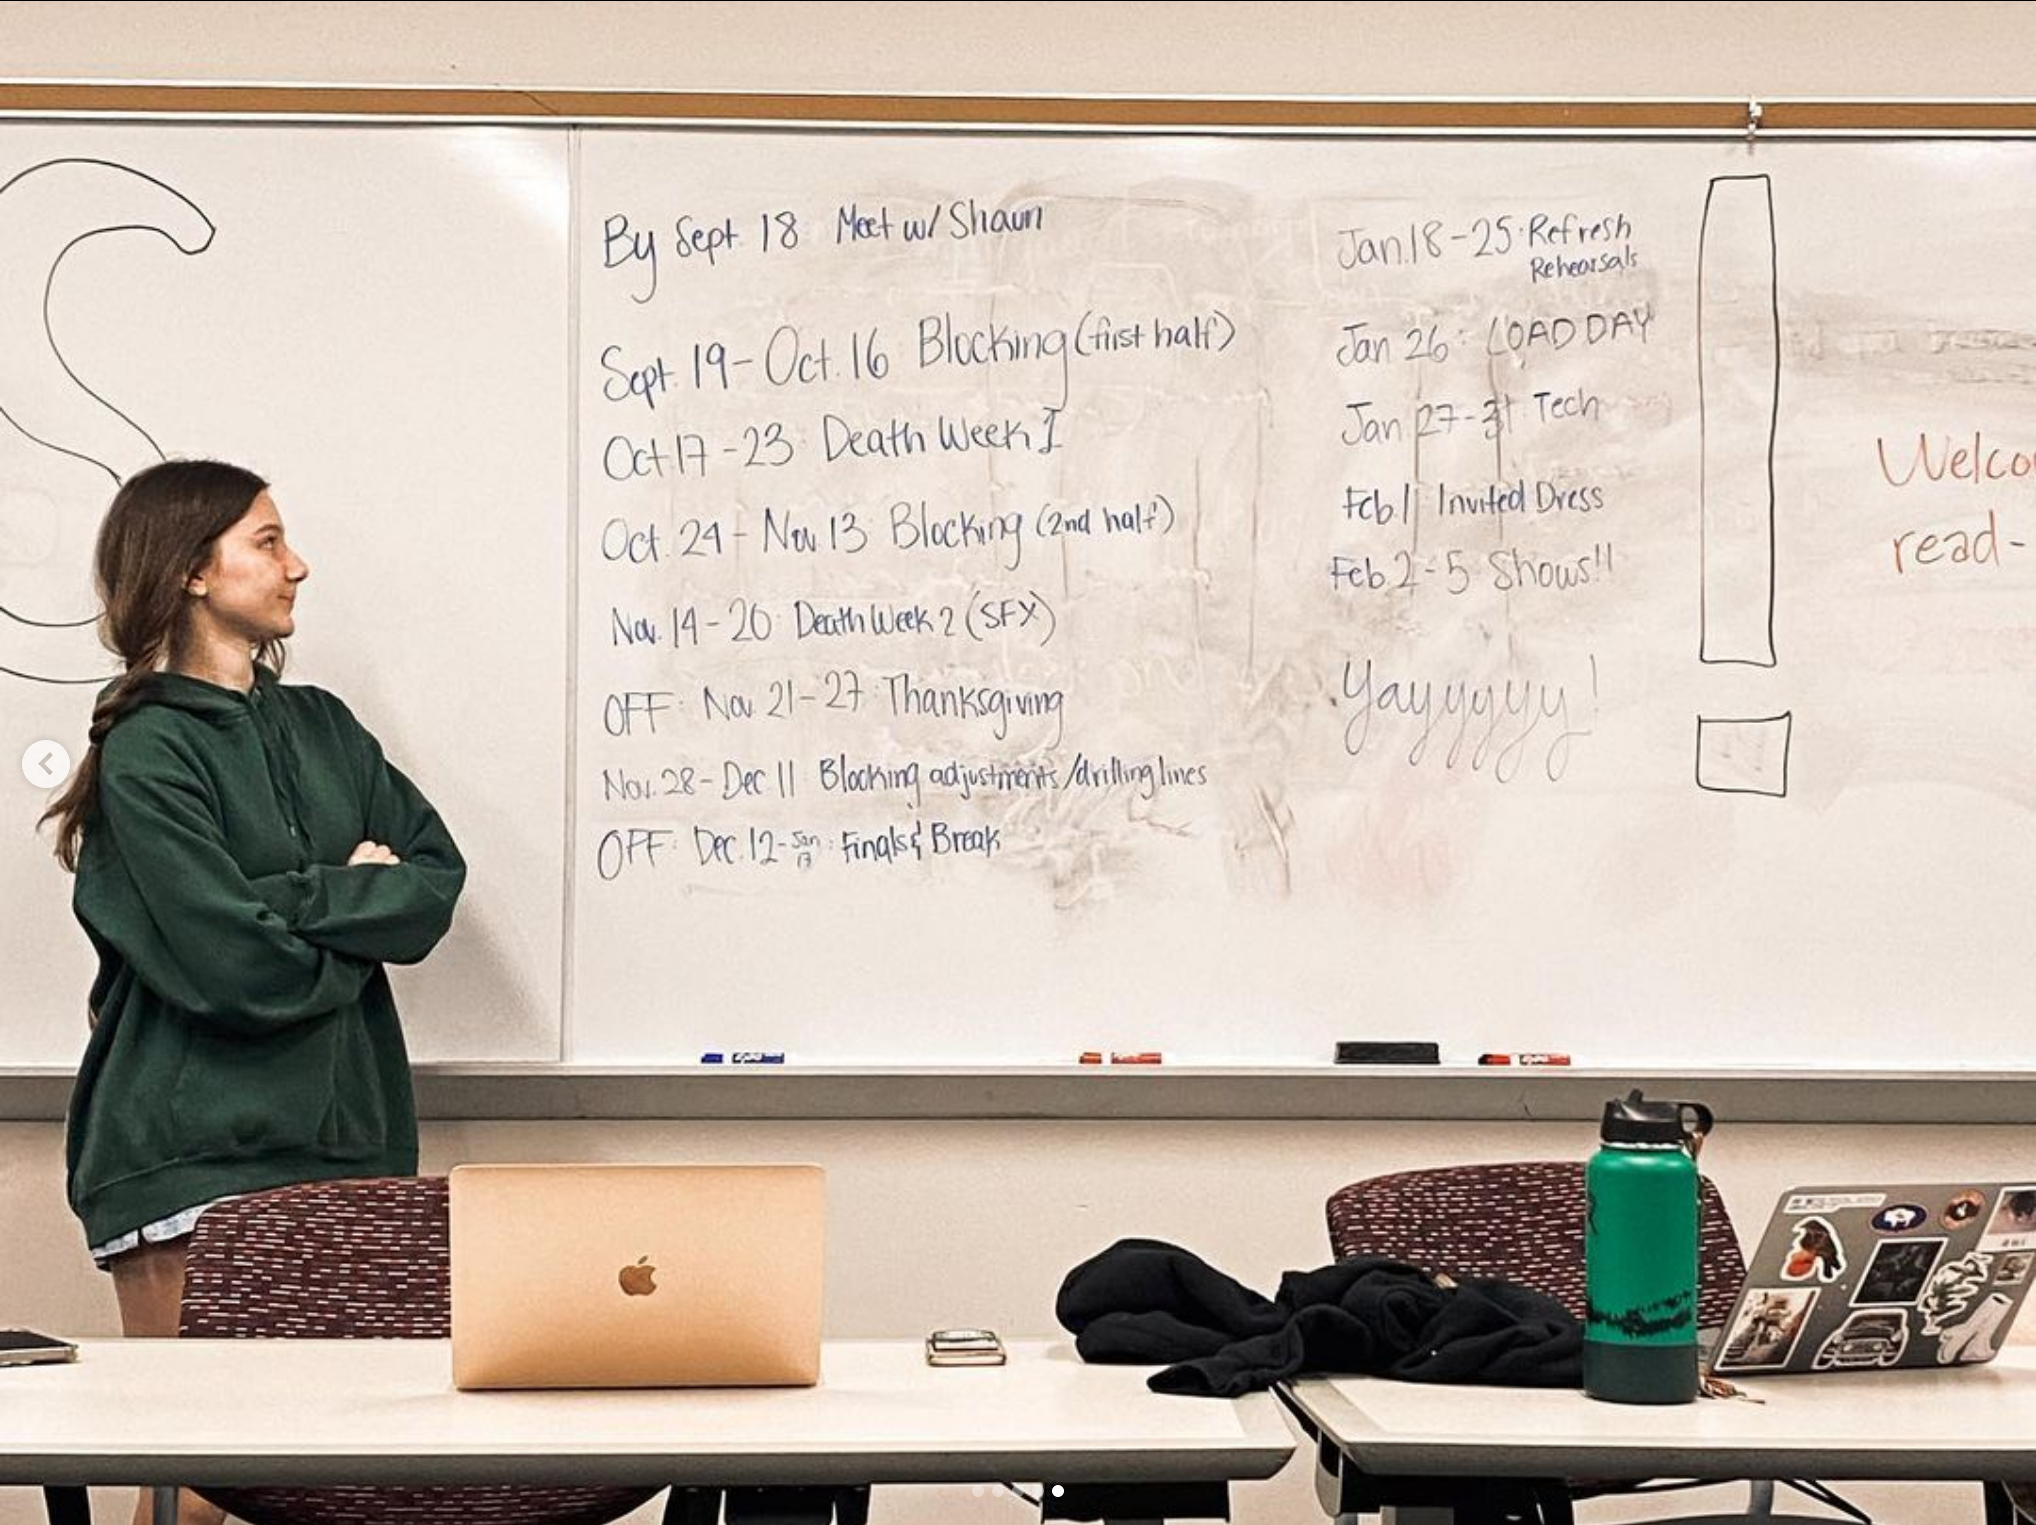 S
By Sept 18 Meet w/ Shaun
Sept. 19 - Oct. 16 Blocking (first half)
Oct 17 - 23: Death Week I
Oct. 24 - Nov 13: Blocking (2nd half)
Nov. 14 - 20: Death Week 2 (SFX)
OFF: Nov 21 - 27: Thanksgiving
Nov. 28 - Dec 11 Blocking adjustments/drilling lines
OFF: Dec. 12 - Jan 17: Finals & Break
Jan. 18 - 25: Refresh
Rehearsals
Jan 26: LOAD DAY
Jan 27 - 31: Tech
Feb. 1 Invited Dress
Feb. 2 - 5 Shows!!
Yayyyyyy!
!
Welco
read-